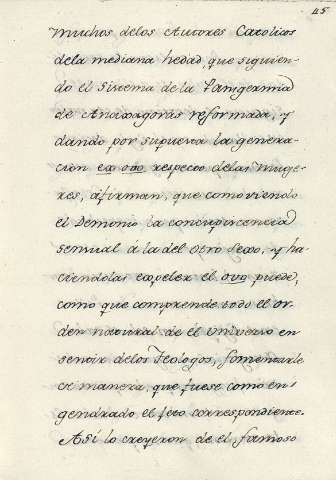 45
Muchos delos Autores Catolicos
dela mediana hedad, que siguien-
do el Sistema de la Pansgermia
de Anaxagoras reformada, y
dando por supuesta la genera-
cion ex ovo respecto delas Muge-
res, afirman, que comoviendo
el Demonio la concupiscencia
sensual á la del otro Sexo, y ha-
ciendolas expeler el ovo puede,
como que comprende todo el or-
den natural de el Universo en
sentir delos Teologos, fomentarle
de manera, que fuese como en-
gendrado el feto correspondiente.
Asi lo creyeron de el famoso